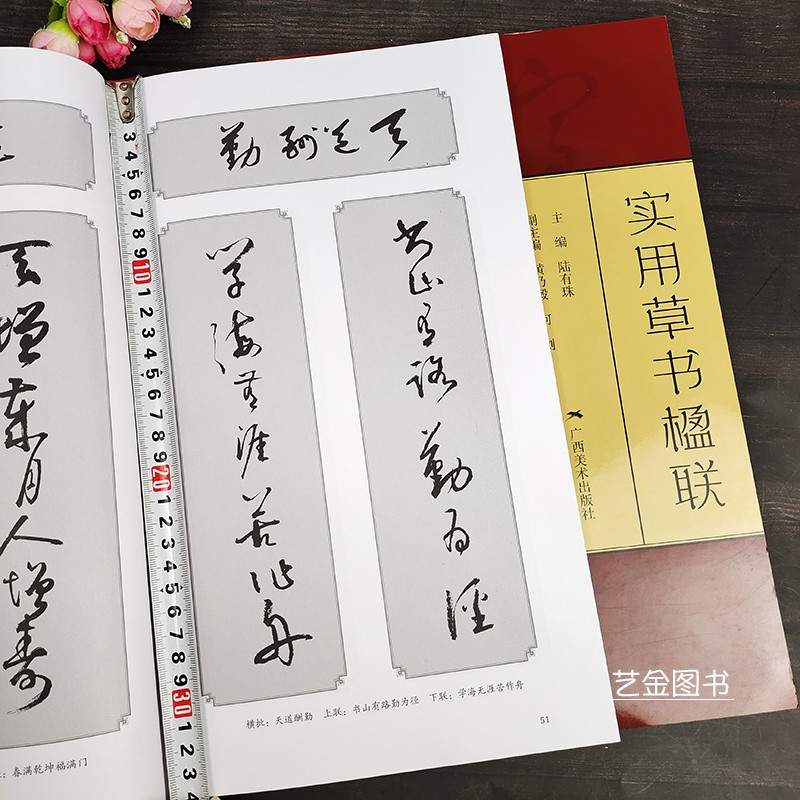 天道酬勤
书山有路勤为径
学海无涯苦作舟
天增岁月人增寿
横批：天道酬勤 上联：书山有路勤为径 下联：学海无涯苦作舟
51
：春满乾坤福满门
实用草书楹联
主 编 陆有珠
副主编
广西美术出版社
艺金图书
3 4 5 6 7 8 9 10 1 2 3 4 5 6 7 8 9 20 1 2 3 4 5 6 7 8 9 30 1 2 3 4